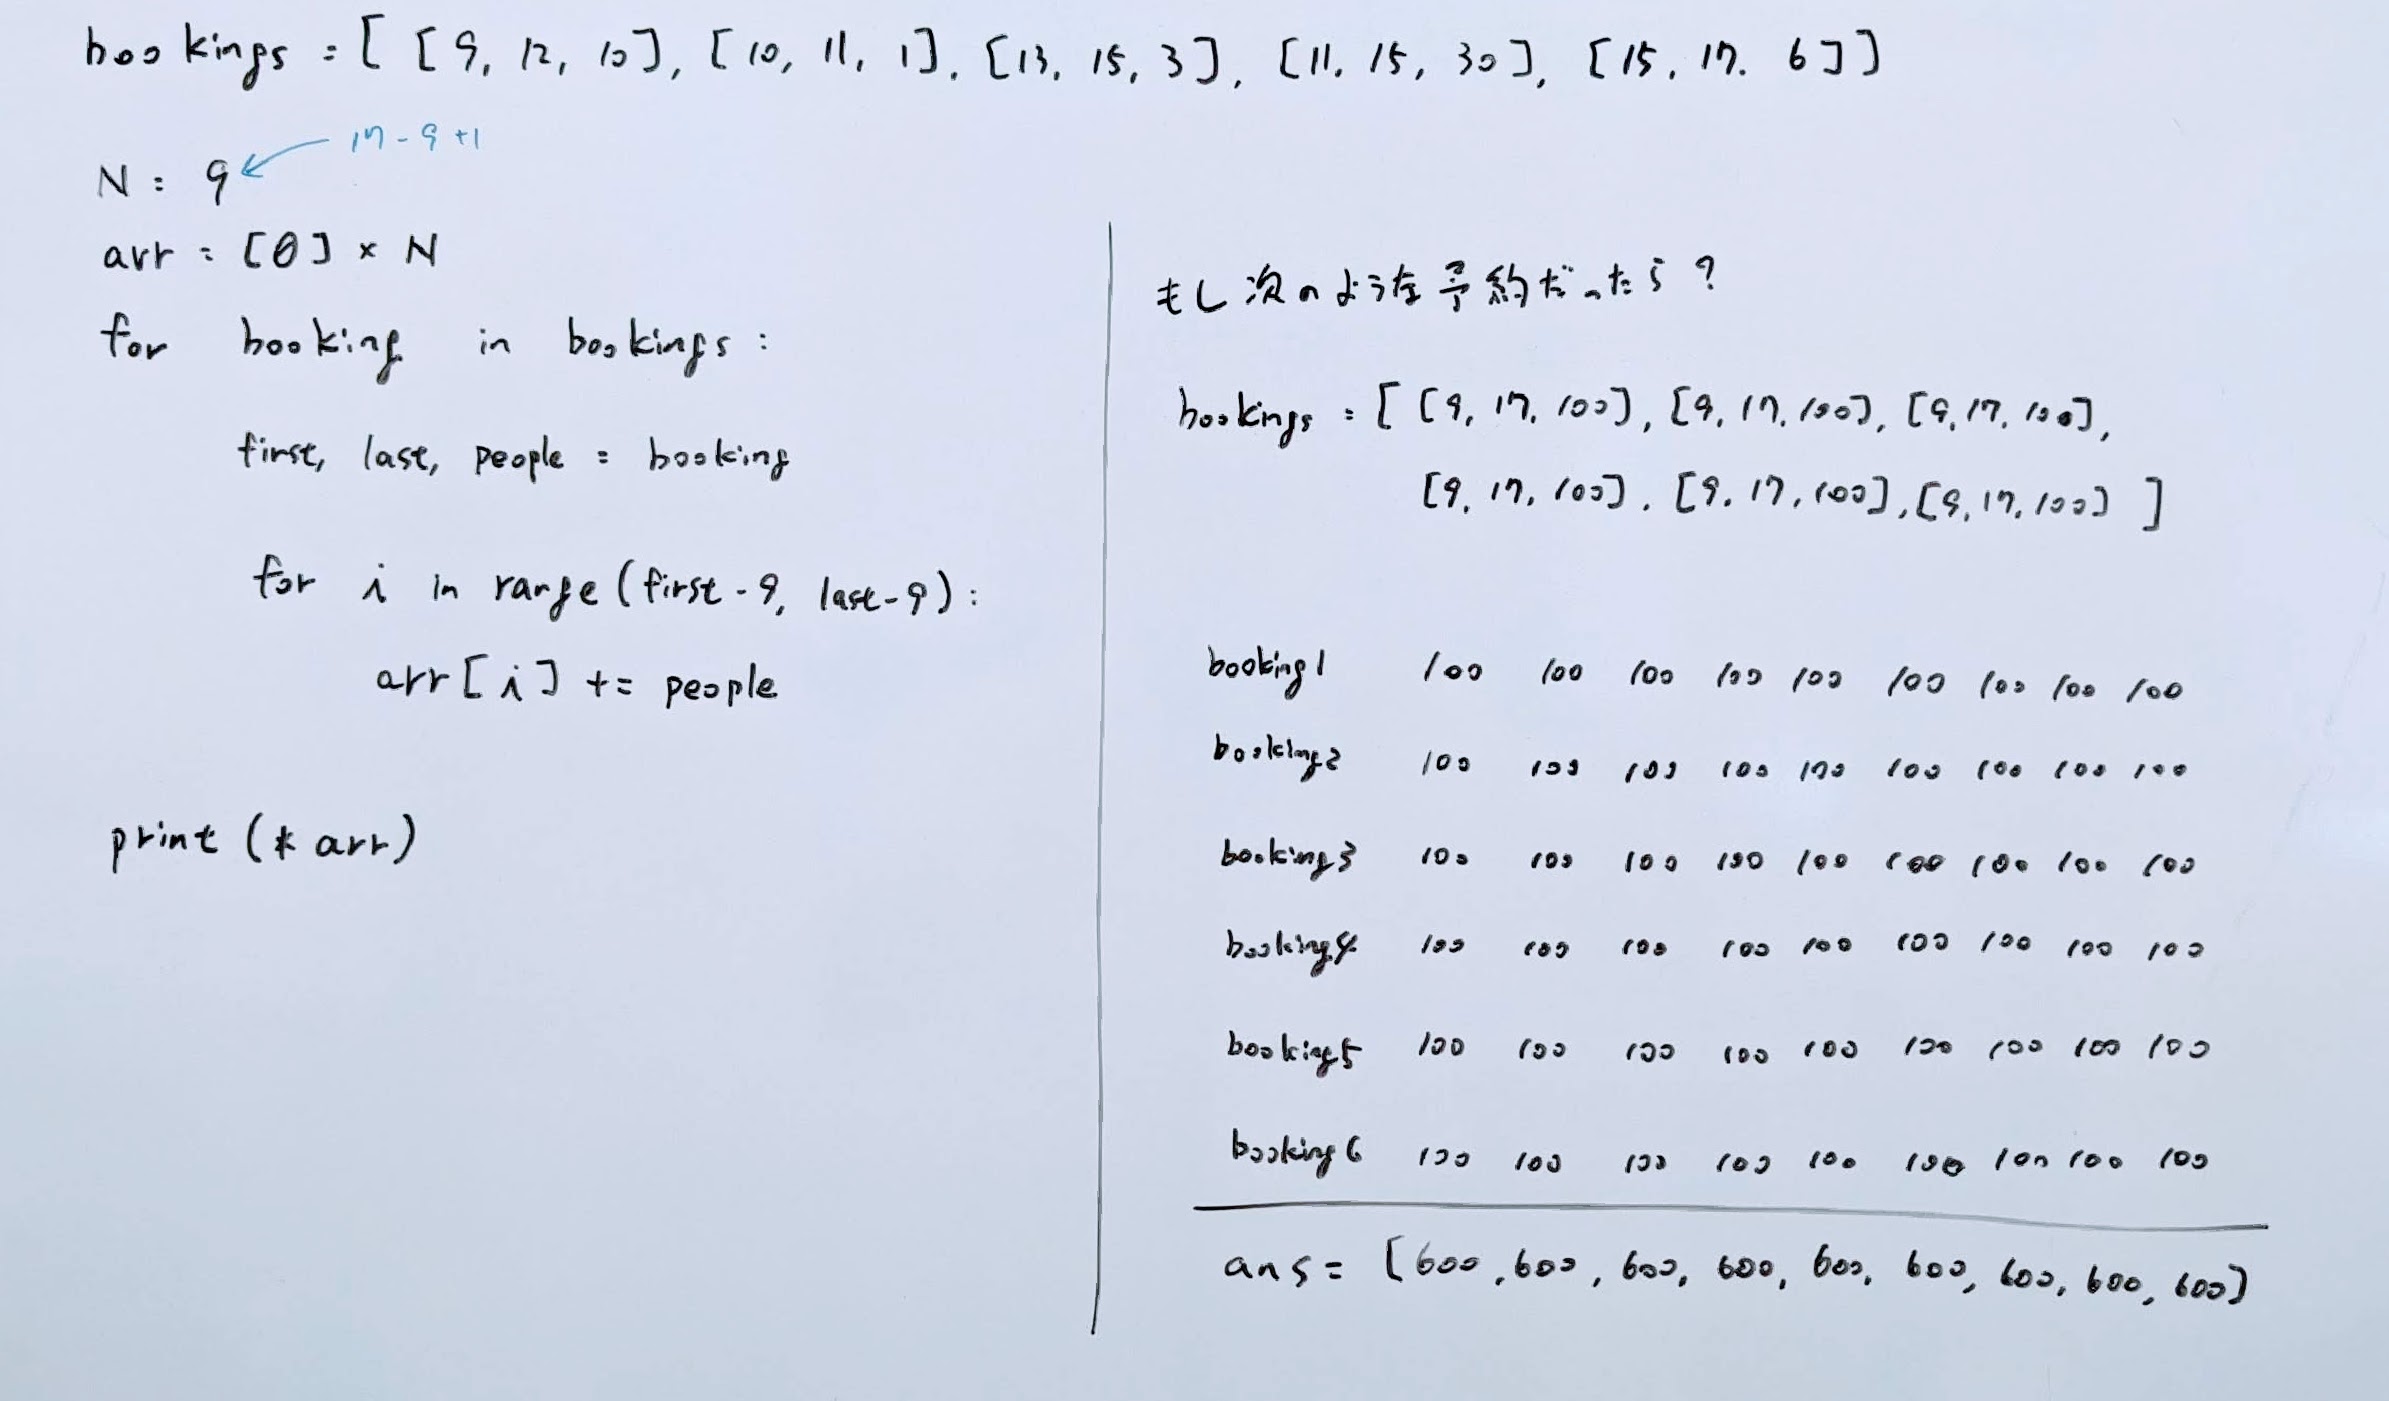 bookings = [ [9, 12, 10], [10, 11, 1], [13, 15, 3], [11, 15, 30], [15, 17, 6] ]
17 - 9 + 1
N = 9
arr = [0] × N
for booking in bookings :
first, last, people = booking
for i in range (first - 9, last - 9) :
arr [i] += people
print (* arr)
もし次のような予約だったら?
bookings = [ [9, 17, 100], [9, 17, 100], [9, 17, 100],
[9, 17, 100], [9, 17, 100], [9, 17, 100] ]
booking1 100 100 100 100 100 100 100 100 100
booking2 100 100 100 100 100 100 100 100 100
booking3 100 100 100 100 100 100 100 100 100
booking4 100 100 100 100 100 100 100 100 100
booking5 100 100 100 100 100 100 100 100 100
booking6 100 100 100 100 100 100 100 100 100
ans = [600, 600, 600, 600, 600, 600, 600, 600, 600]